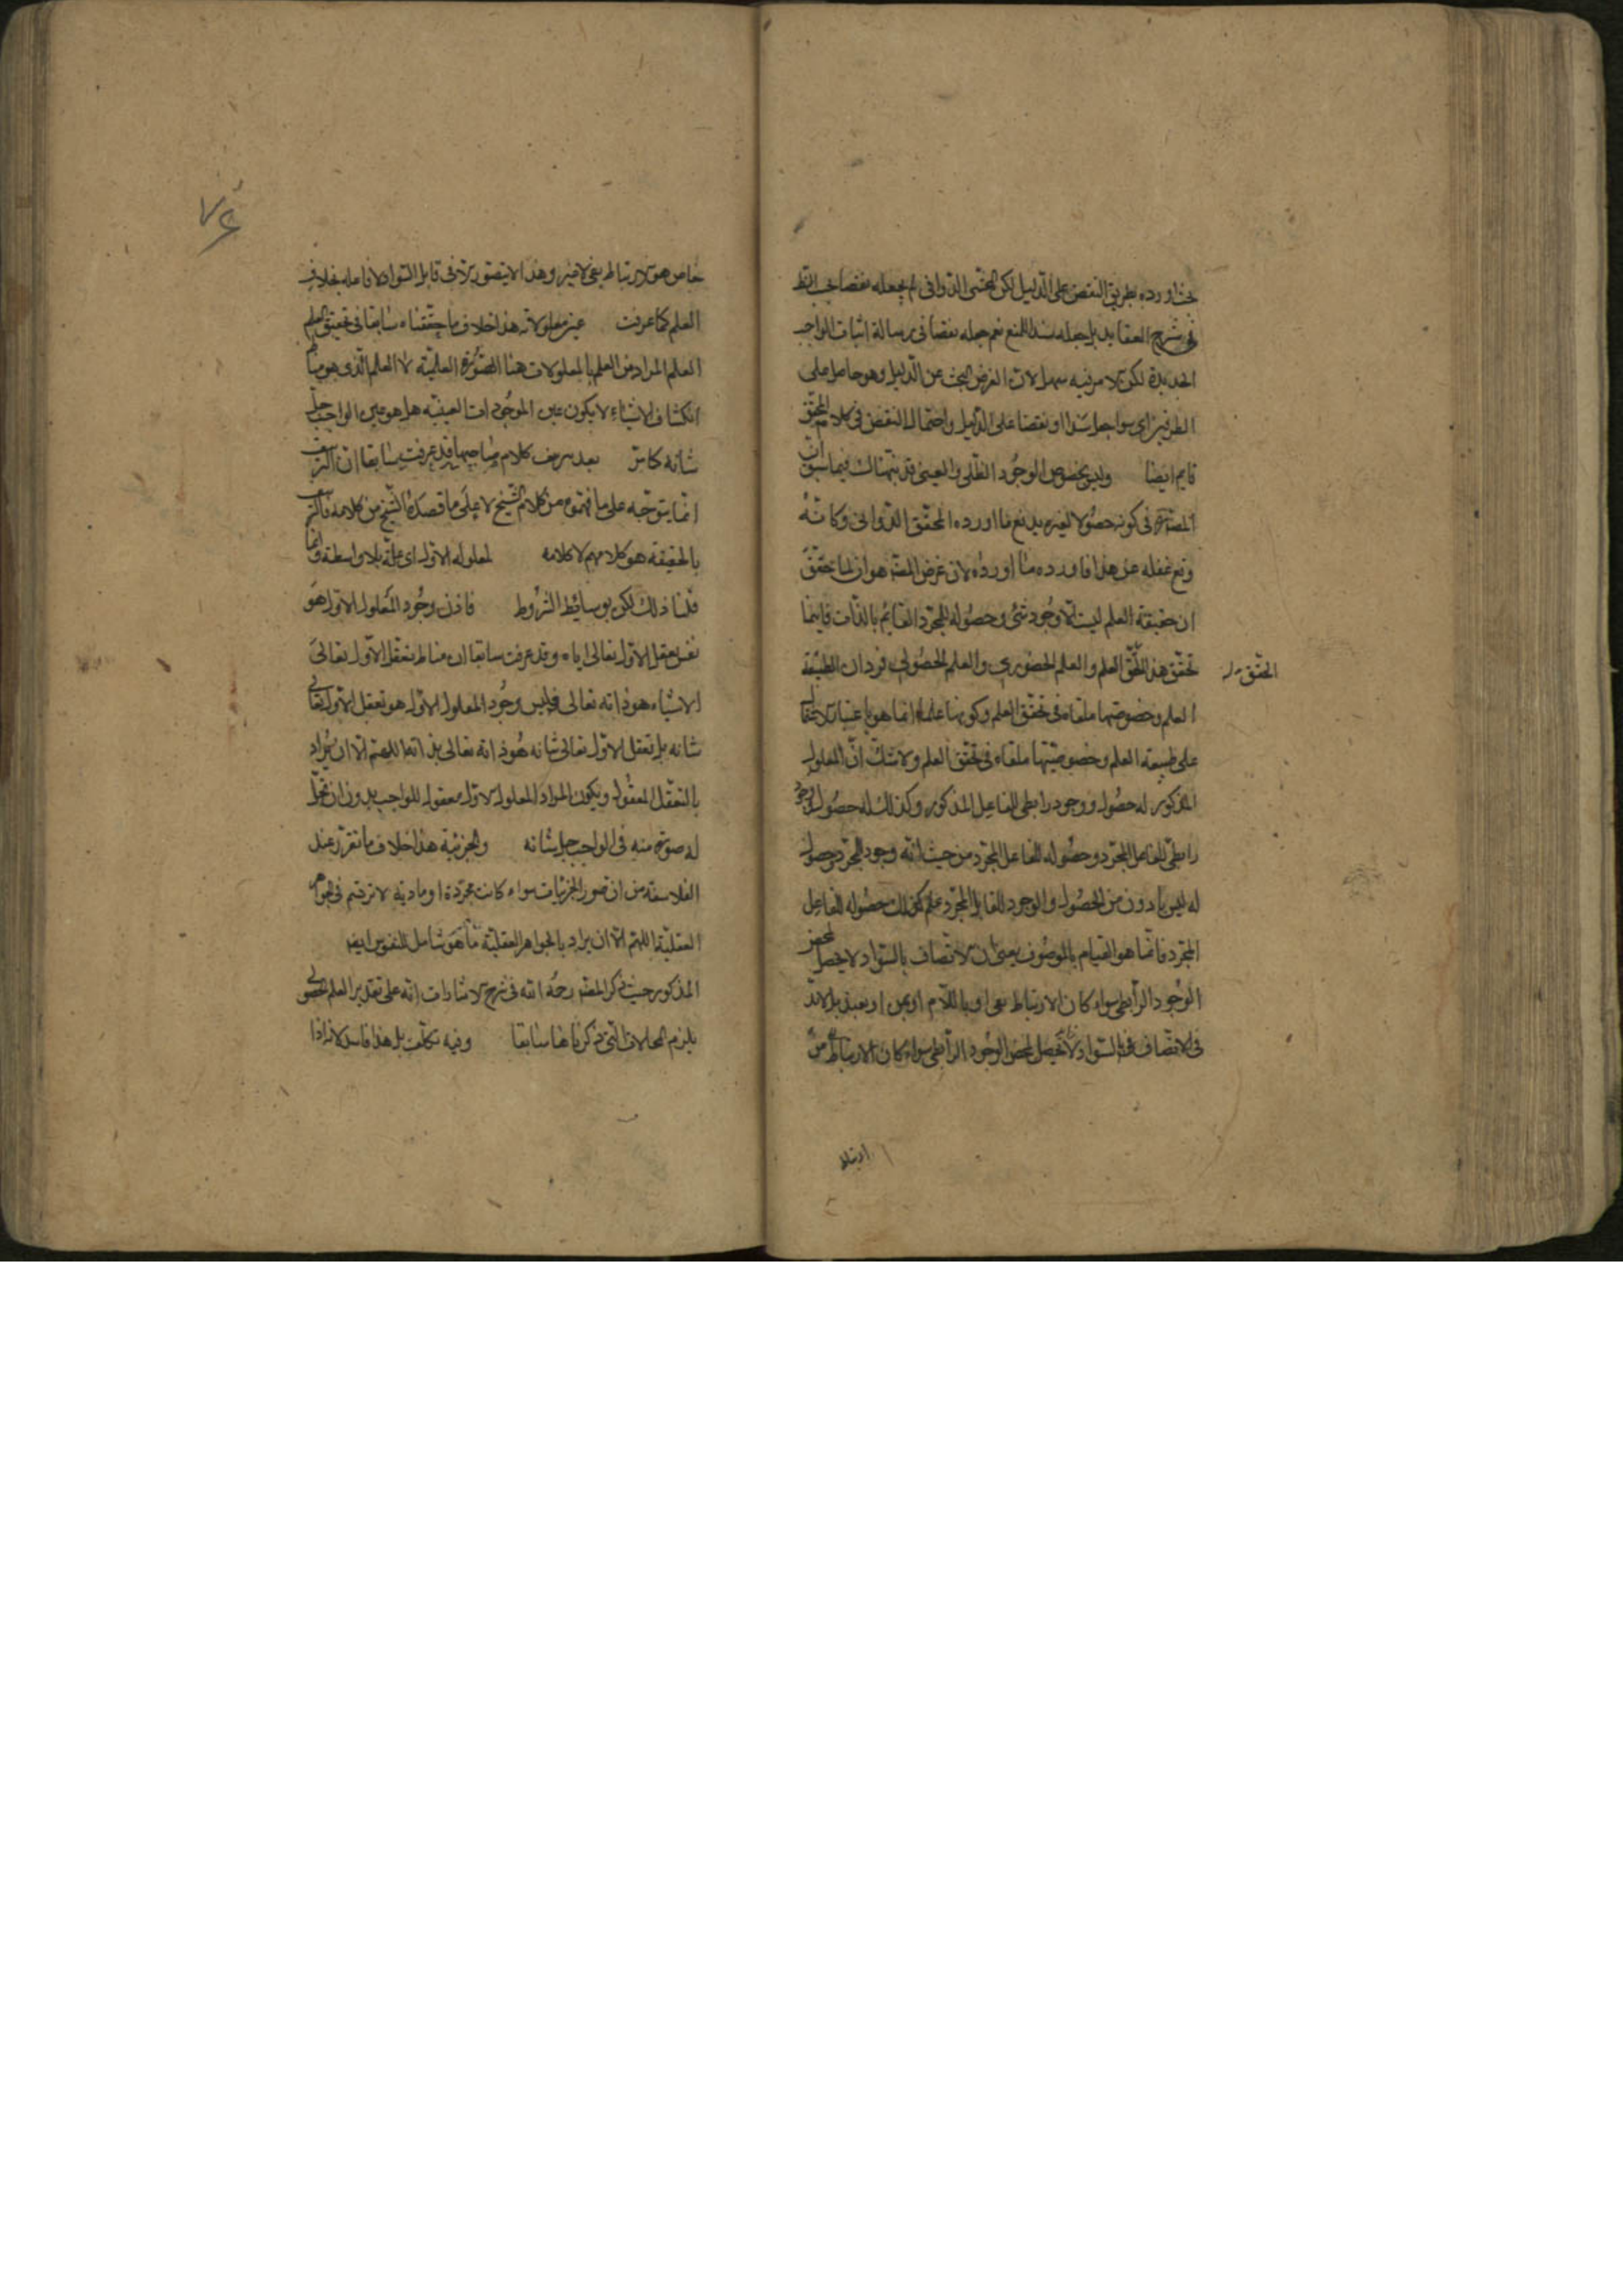 بحث اورده بطريق النقض على الدليل لكن المحقق الدوانى لم يجعله نقضا بحسب الظ
فى شرح العقايد بل جعله سندا للمنع نعم جعله نقضا فى رسالة اثبات الواجب
الجديدة لكن الامر فيه سهل لان الغرض البحث عن الدليل وهو حاصل على
الطرفين اى سواء جعل سندا او نقضا على الدليل واحتمال النقض فى كلام المحقق
قايم ايضا وليس بخصوص الوجود الظلى والعينى قد نبهناك فيما سبق ان
المص فى كونه حصولا لغيره يدفع ما اورده المحقق الدوانى وكانه
وقع غفلة عن هذا فاورده ما اورده لان غرض المص هو ان لما تحقق
ان حقيقة العلم ليست الا وجود شئ وحصوله للمجرد القايم بالذات فاينما
تحقق هذا تحقق العلم والعلم الحضورى والعلم الحصولى فردان لطبيعة
المحقق
العلم وخصوصيتهما ملغاة فى تحقق العلم وكونهما علما انما هو باعتبار
على طبيعة العلم وخصوصيتهما ملغاة فى تحقق العلم ولا شك ان المعلول
المذكور له حصول ووجود رابطى للفاعل المذكور وكذلك له حصول ووجود
رابطى للفاعل المجرد وحصوله للفاعل المجرد من حيث انه وجود للمجرد وحصول
له ليس بادون من الحصول والوجود للقابل المجرد علم كذلك حصوله للفاعل
المجرد فانما هو القيام بالموصوف يعنى ان الاتصاف بالسواد لا يحصل لمحض
الوجود الرابطى سواء كان الارتباط بفى او باللام او بمن او بعند بل لابد
فى الاتصاف بالسواد لا يحصل لمحض الوجود الرابطى سواء كان الارتباط من
ارتباط
٧٤
خاص هو الارتباط بفى لا غير وهذا لا يتصور الا فى قابل السواد لا فاعله بخلاف
العلم كما عرفت غير معلولاته هذا خلاف ما حققناه سابقا فى تحقيق العلم
العلم المراد من العلم بالمعلولات هنا الصورة العلمية لا العلم الذى هو مناط
انكشاف الاشياء لا يكون عين الموجودات العينية هل هو عين الواجب جل
شانه كما مر بعد تزييف كلام صاحبها قد عرفت سابقا ان التزييف
انما يتوجه على ما فهموه من كلام الشيخ لا على ما قصده الشيخ من كلامه فالتزييف
بالحقيقة هو كلامهم لا كلامه لمعلوله الاول اى علة بلا واسطة وانما
قلنا ذلك لكن بوسائط الشروط فاذن وجود المعلول الاول هو
نفس تعقل الاول تعالى اياه وقد عرفت سابقا ان مناط تعقل الاول تعالى
الاشياء هو ذاته تعالى فليس وجود المعلول الاول هو تعقل الاول تعالى
شانه بل تعقل الاول تعالى شانه هو ذاته تعالى بذاتها اللهم الا ان يراد
بالتعقل المعقول ويكون المراد المعلول الاول معقول للواجب بدون ان تحل
له صورة منه فى الواجب جل شانه والجزئية هذا خلاف ما تقرر عند
الفلاسفة من ان صور الجزئيات سواء كانت مجردة او مادية لا ترتسم فى الجواهر
العقلية اللهم الا ان يراد بالجواهر العقلية ما هو شامل للنفوس ايضا
المذكور حيث ذكر المص رحمه الله فى شرح الاشارات انه على تقدير العلم الحصولى
يلزم المحالات التى ذكرناها سابقا وفيه تكلف بل هذا فاسد لانه اذا